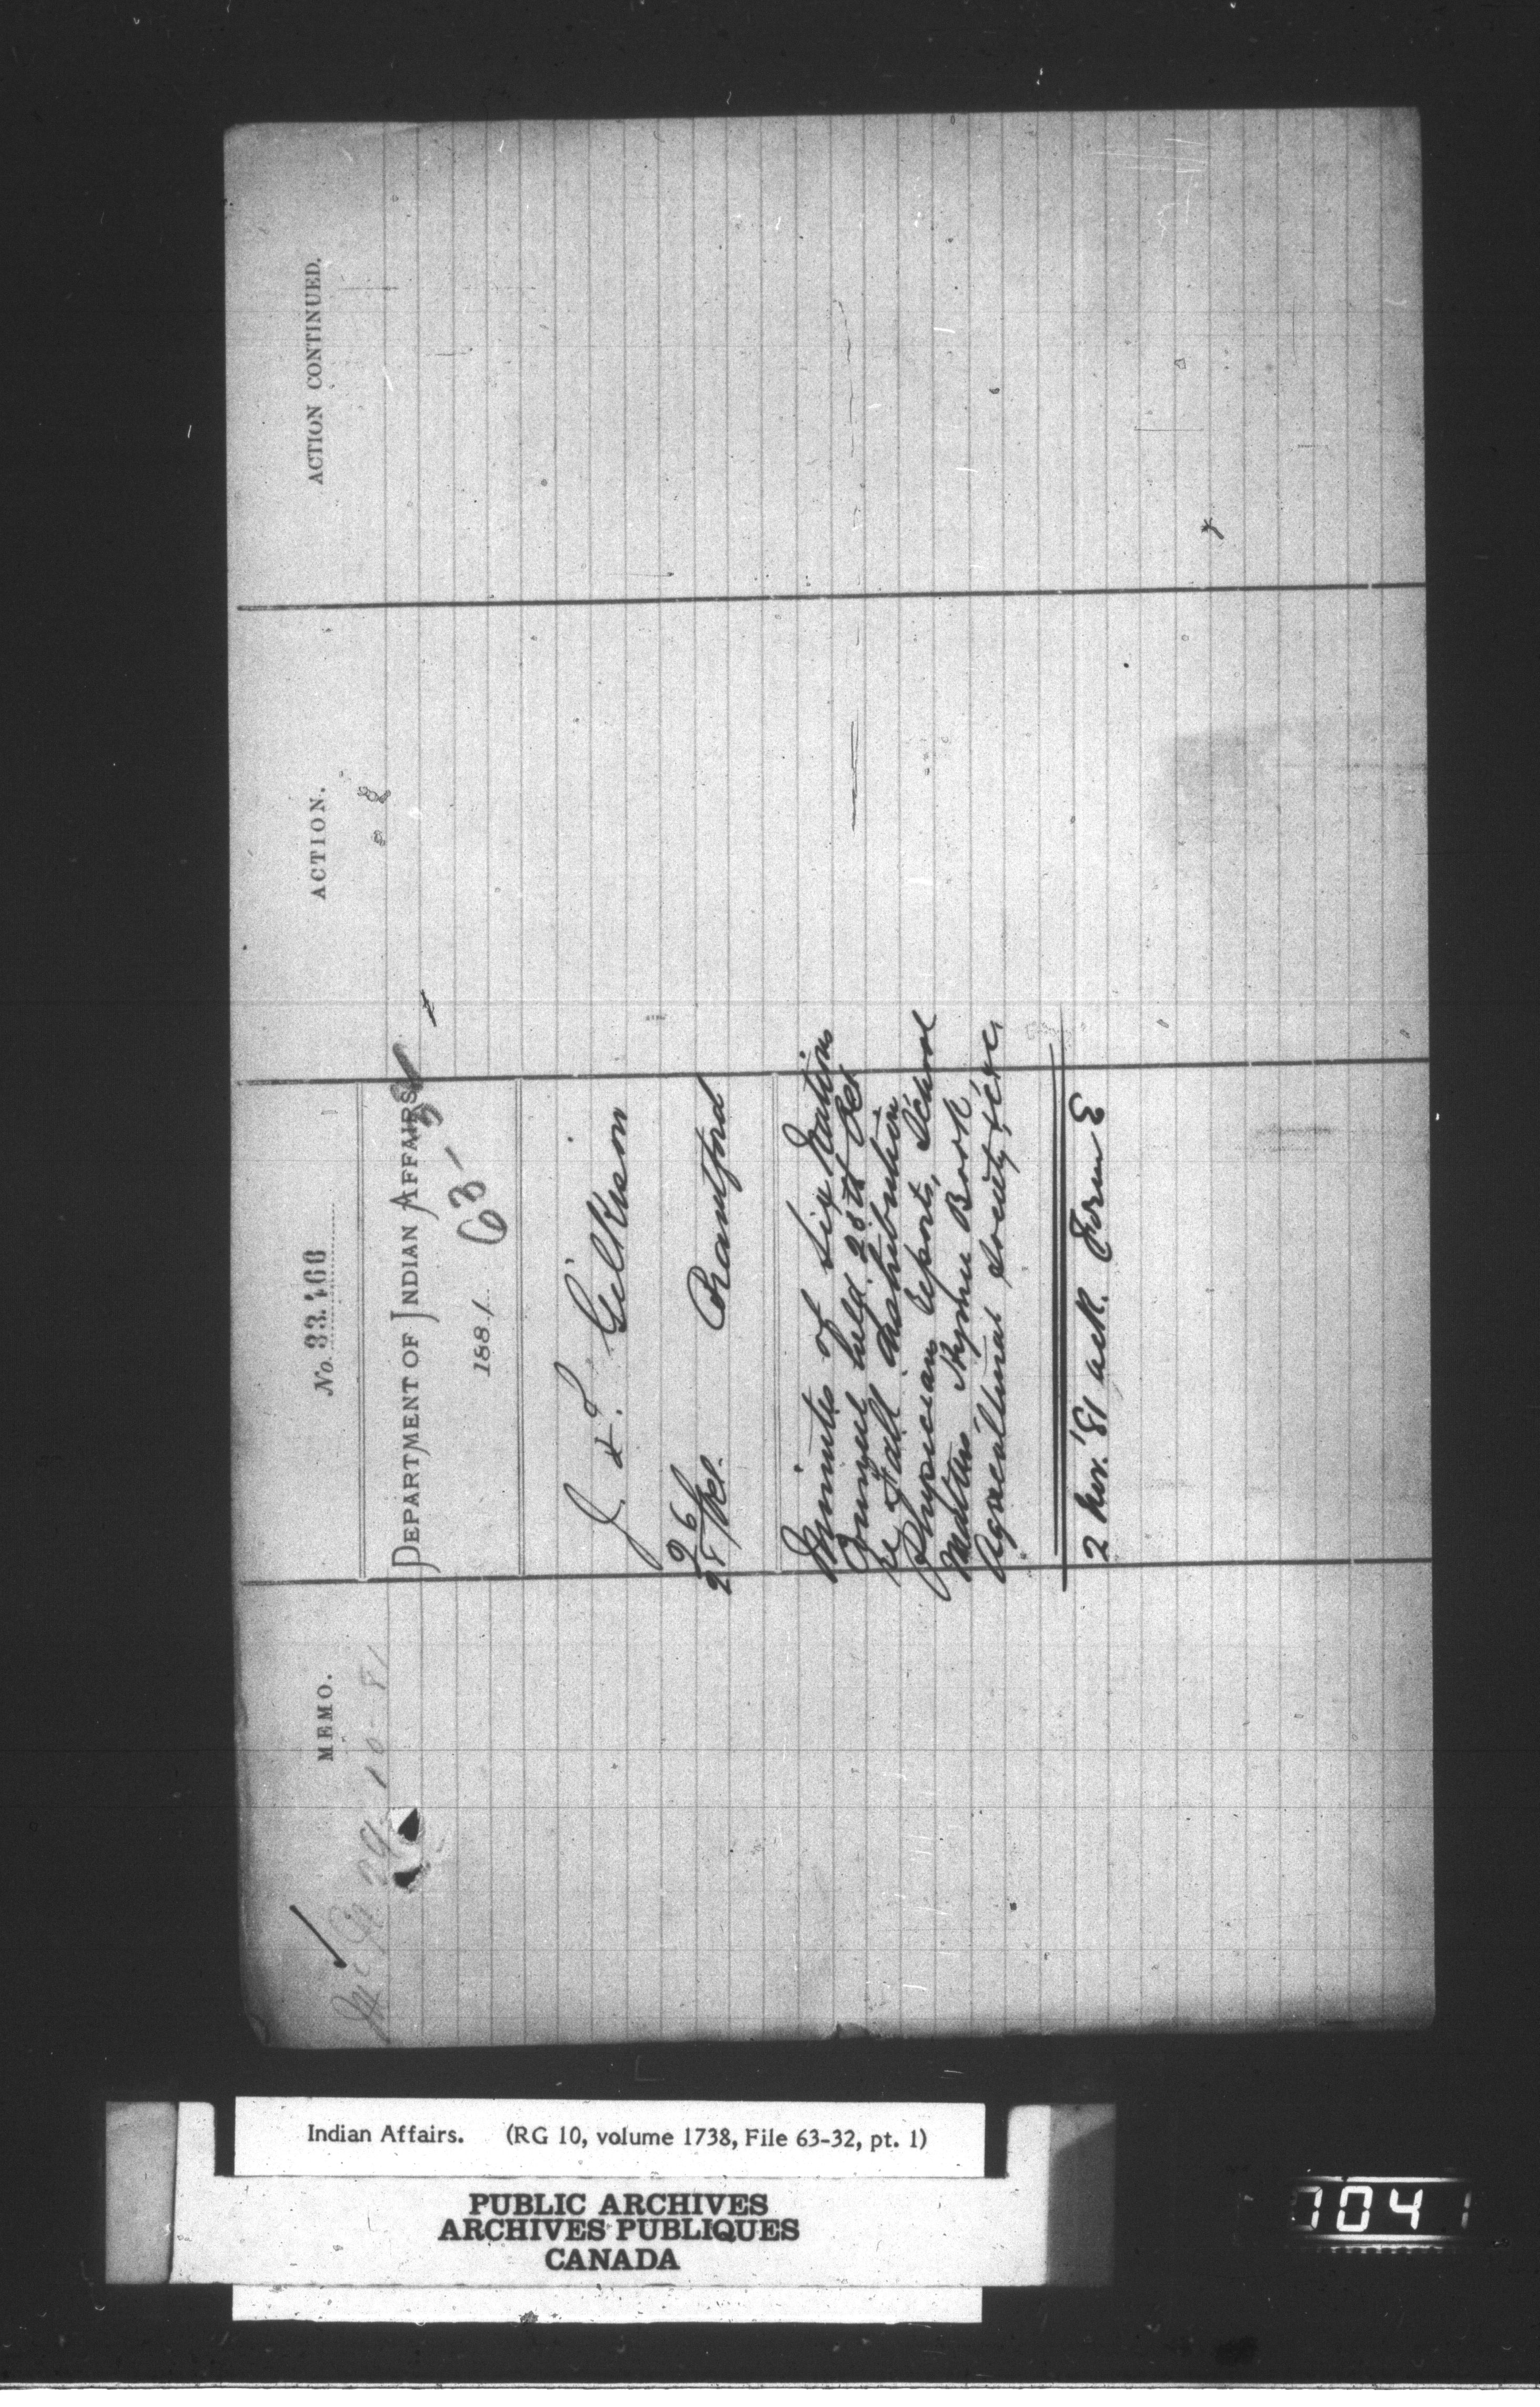 MEMO.
29-10-81
No. 33.466
DEPARTMENT OF INDIAN AFFAIRS
63-32
1881
J. T. Gilkison
26 Oct. Brantford
28
Minutes of Six Nations
Council held 25th Oct
re Fall distribution
Physicians Reports, School
Matters Hymn Book
Agricultural Society, &c &c,
2 Nov. '81 ack. Form E
ACTION.
ACTION CONTINUED.
Indian Affairs. (RG 10, volume 1738, File 63-32, pt. 1)
PUBLIC ARCHIVES
ARCHIVES PUBLIQUES
CANADA